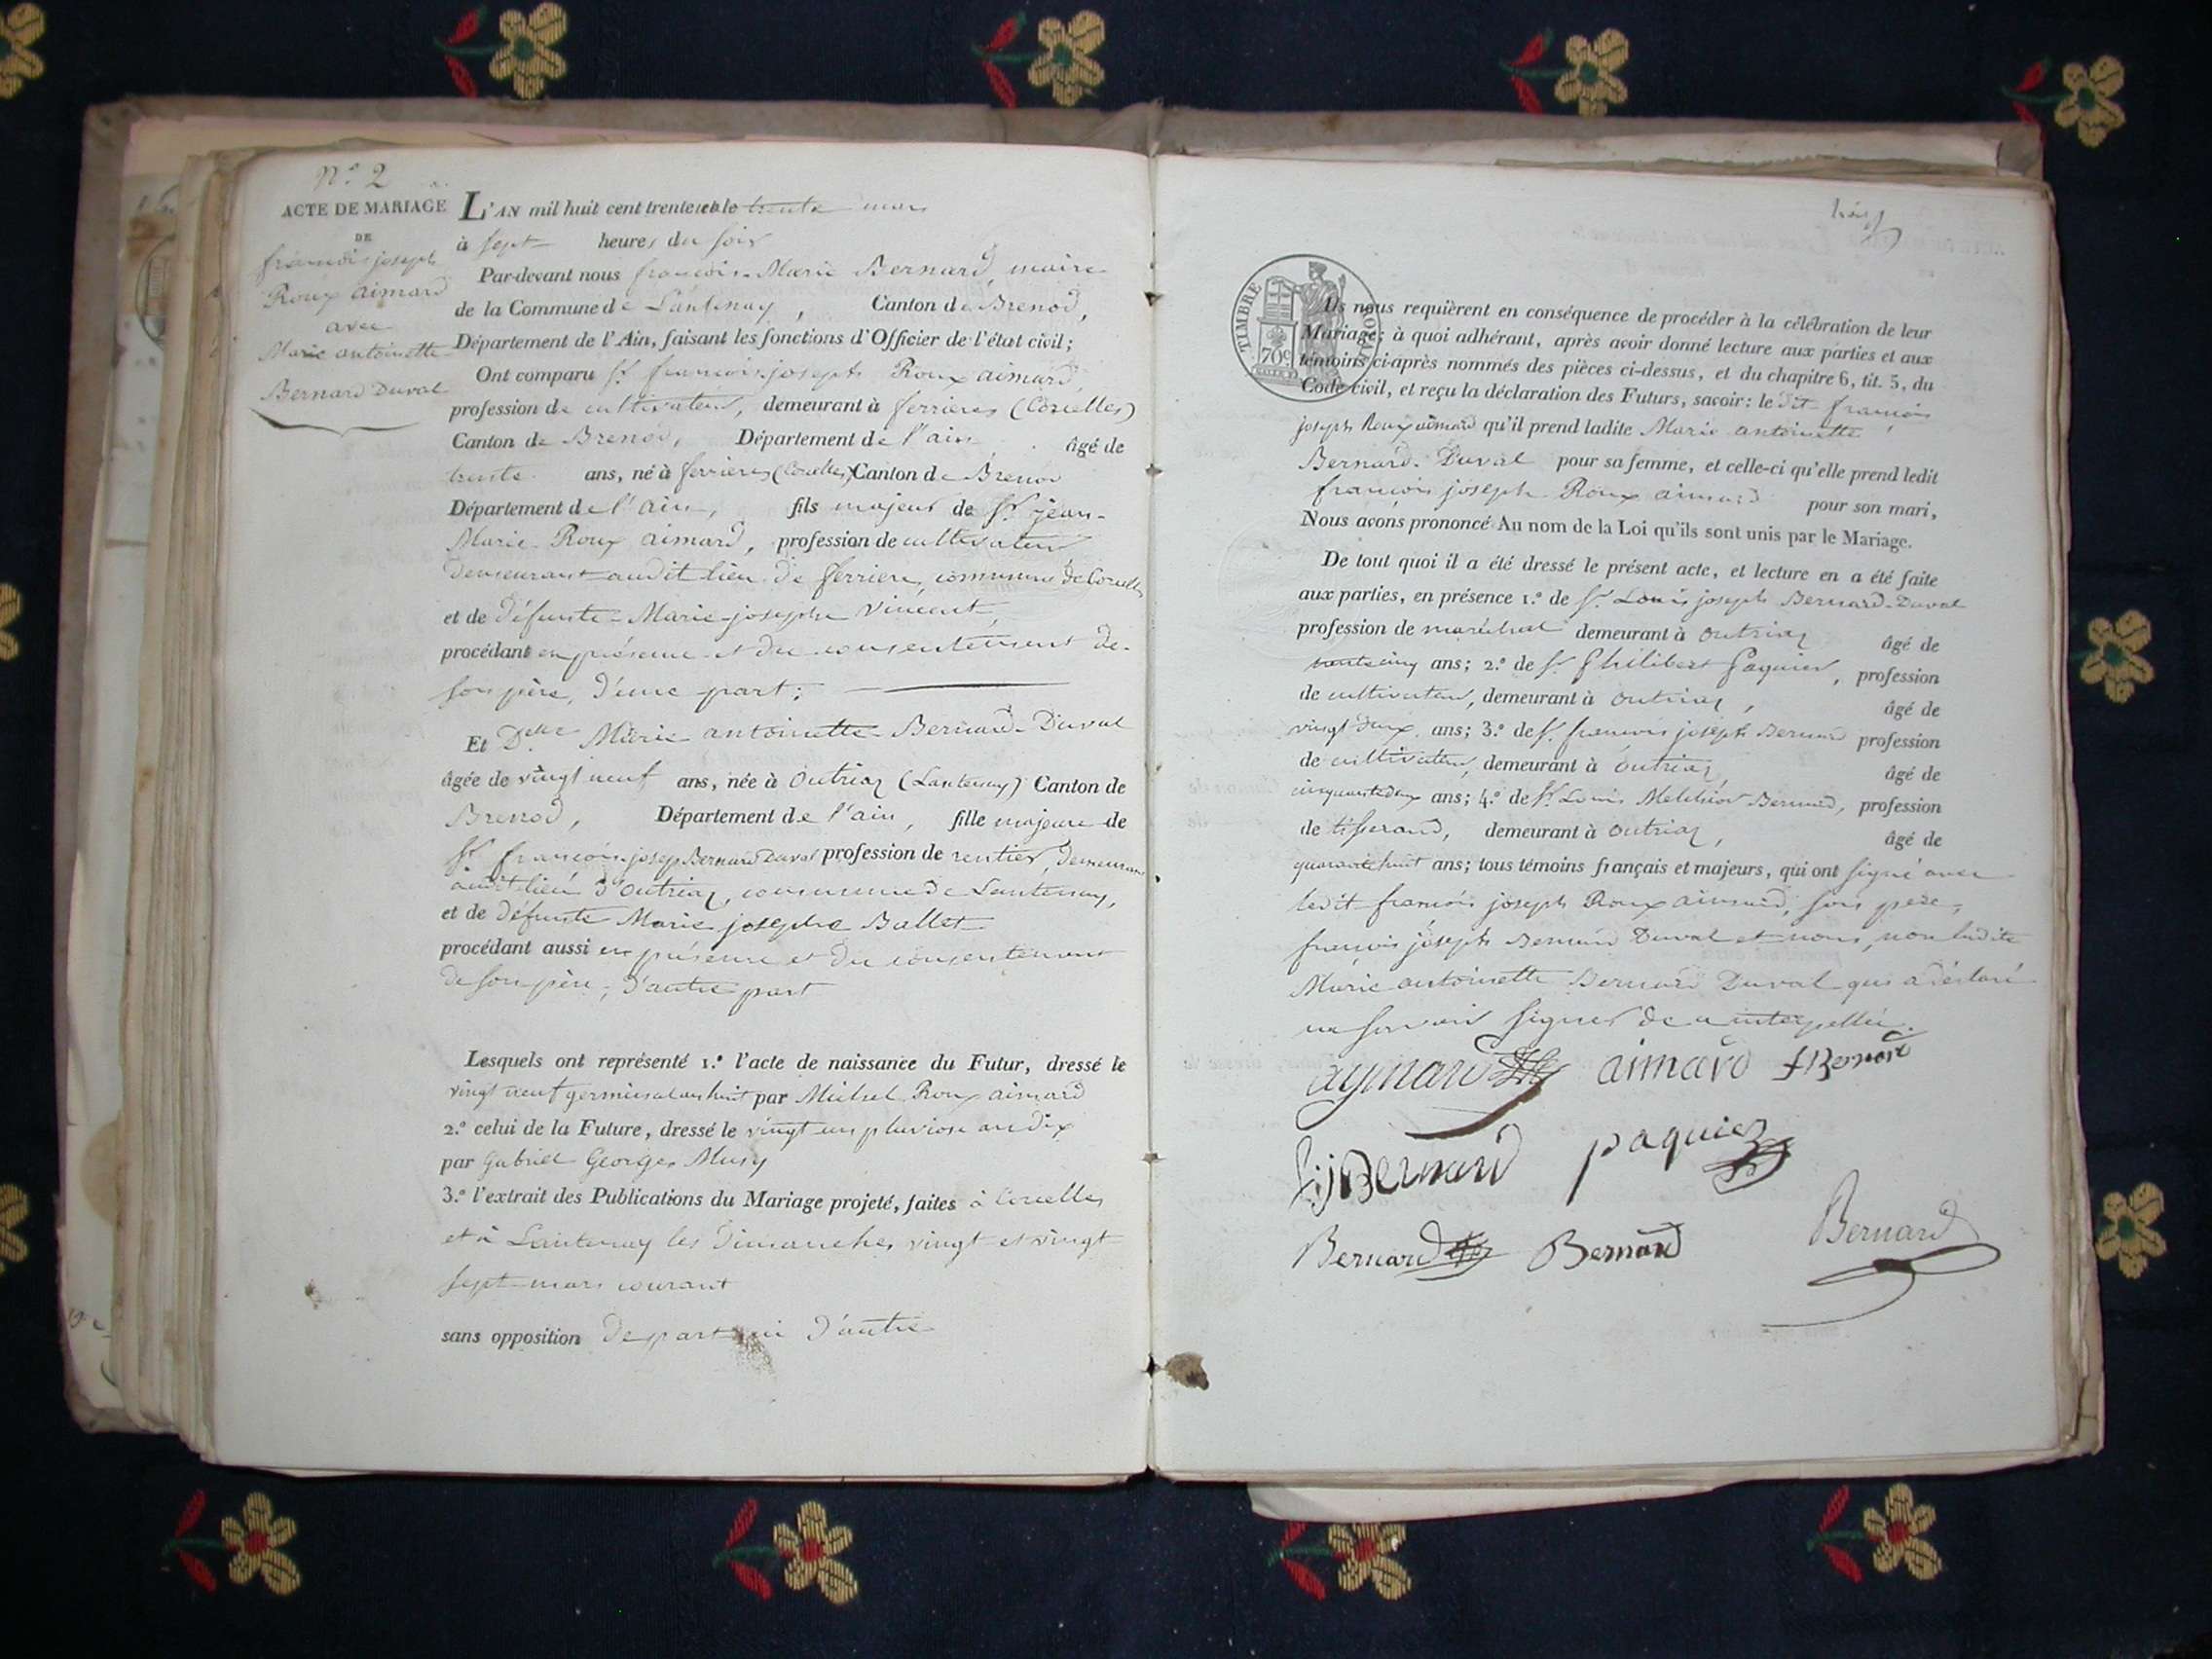 N.° 2
ACTE DE MARIAGE
DE
françois joseph
Roux aimard
avec
Marie antoinette
Bernard Duval
L'AN mil huit cent trente et le trente mars
à sept heures du soir
Par-devant nous françois-Marie Bernard, maire
de la Commune de Lantenay, Canton de Brenod,
Département de l'Ain, faisant les fonctions d'Officier de l'état civil;
Ont comparu Sr. françois joseph Roux aimard,
profession de cultivateur, demeurant à ferrieres (Corcelles)
Canton de Brenod, Département de l'ain âgé de
trente ans, né à ferrieres (Corcelles) Canton de Brenod
Département de l'ain, fils majeur de Sr. jean-
Marie Roux aimard, profession de cultivateur
demeurant audit lieu de ferriere, commune de Corcelles
et de défunte Marie-josephe Vincent,
procédant en présence et du consentement de
son père, d'une part;
Et Delle Marie antoinette Bernard-Duval
âgée de vingt neuf ans, née à Outriaz (Lantenay) Canton de
Brenod, Département de l'ain, fille majeure de
Sr. françois josep Bernard Duval profession de rentier, demeurant
audit lieu d'Outriaz, commune de Lantenay,
et de défunte Marie josephe Ballet
procédant aussi en présence et du consentement
de son père, d'autre part
Lesquels ont représenté 1.° l'acte de naissance du Futur, dressé le
vingt neuf germinal an huit par Michel Roux aimard
2.° celui de la Future, dressé le vingt un pluviose an dix
par Gabriel Georges Musy
3.° l'extrait des Publications du Mariage projeté, faites à Corcelles
et à Lantenay les dimanches vingt et vingt
sept mars courant
sans opposition de part ni d'autre
TIMBRE ROYAL
70c
Ils nous requièrent en conséquence de procéder à la célébration de leur
Mariage; à quoi adhérant, après avoir donné lecture aux parties et aux
témoins ci-après nommés des pièces ci-dessus, et du chapitre 6, tit. 5, du
Code civil, et reçu la déclaration des Futurs, savoir: le dit françois
joseph Roux aimard qu'il prend ladite Marie antoinette
Bernard-Duval pour sa femme, et celle-ci qu'elle prend ledit
françois joseph Roux aimard pour son mari,
Nous avons prononcé Au nom de la Loi qu'ils sont unis par le Mariage.
De tout quoi il a été dressé le présent acte, et lecture en a été faite
aux parties, en présence 1.° de Sr. Louis joseph Bernard-Duval
profession de maréchal demeurant à Outriaz âgé de
trente cinq ans; 2.° de Sr. Philibert Paquier, profession
de cultivateur, demeurant à Outriaz, âgé de
vingt deux ans; 3.° de Sr. françois joseph Bernard profession
de cultivateur, demeurant à Outriaz, âgé de
cinquante deux ans; 4.° de Sr. Louis Melchior Bernard, profession
de tisserand, demeurant à Outriaz, âgé de
quarante huit ans; tous témoins français et majeurs, qui ont signé avec
ledit françois joseph Roux aimard, son père,
françois joseph Bernard Duval et nous, non ladite
Marie antoinette Bernard Duval qui a déclaré
ne savoir signer de ce interpellée.
aymard aimard f Bernard
fj Bernard paquier
Bernard Bernard Bernard